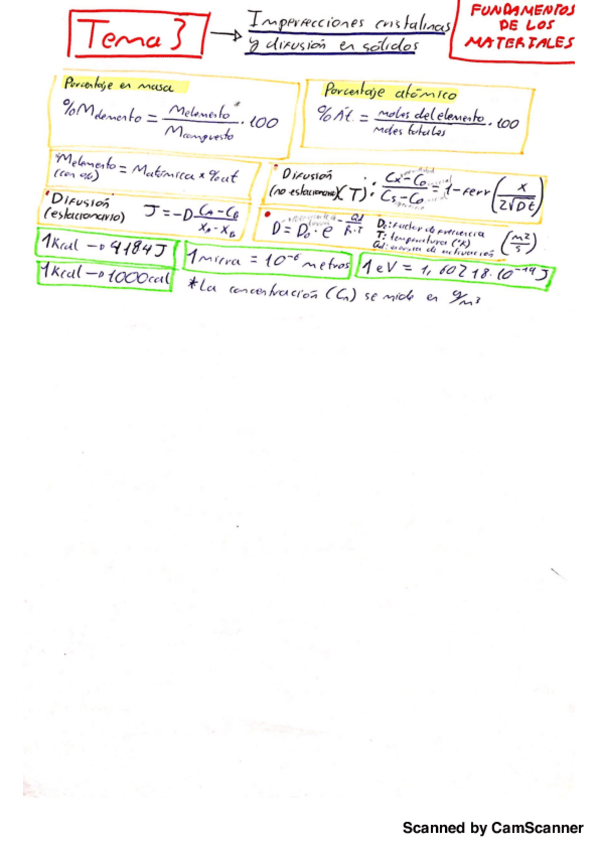 Tema 3 → Imperfecciones cristalinas y difusión en sólidos
FUNDAMENTOS DE LOS MATERIALES
Porcentaje en masa
%M elemento = Melemento / Mcompuesto · 100
Porcentaje atómico
% At. = moles del elemento / moles totales · 100
Melemento = Matómica × %at
(con %)
Difusión (no estacionario) (T): Cx-Co / Cs-Co = 1 - ferr (x / 2√Dt)
Difusión (estacionario) J = -D CA-CB / XA-XB
D = D₀ · e^(-Qd / R·T)
D₀: factor de frecuencia
T: temperatura (ºK)
Qd: energía de activación
(m²/s)
1 Kcal → 4184 J
1 micra = 10⁻⁶ metros
1 eV = 1,60218·10⁻¹⁹ J
1 Kcal → 1000 cal
*La concentración (Cn) se mide en g/m³
Scanned by CamScanner